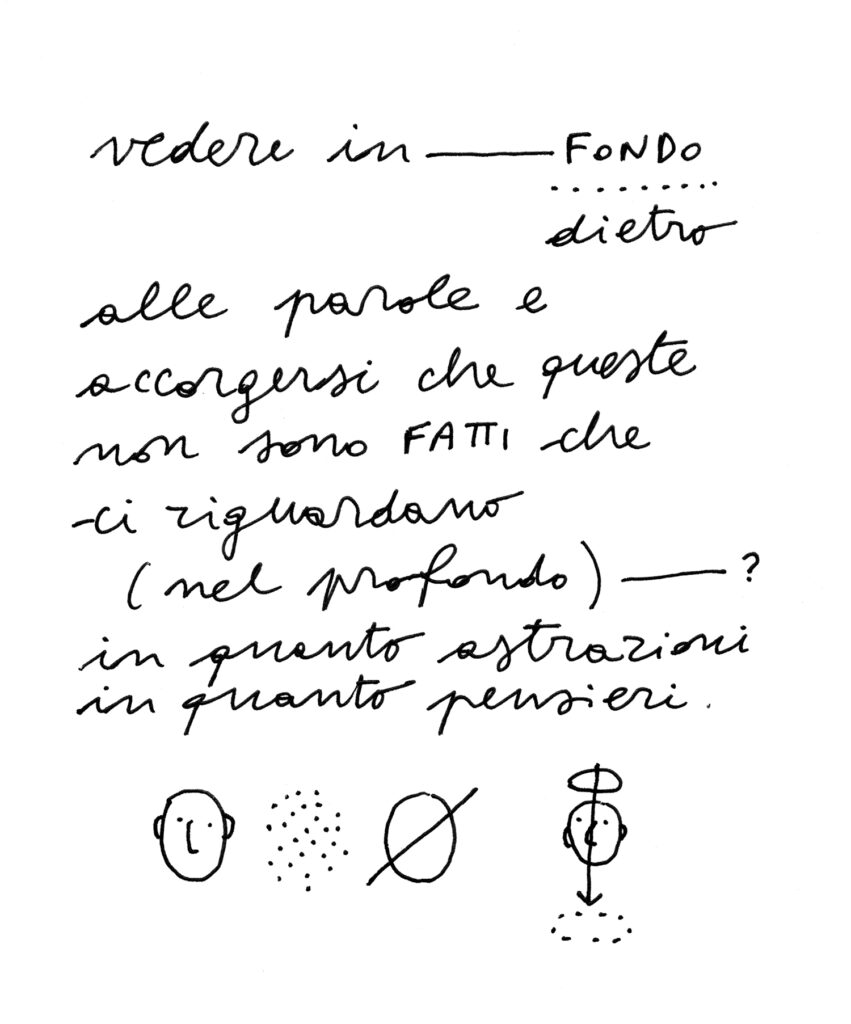 vedere in — FONDO
dietro
alle parole e
accorgersi che queste
non sono FATTI che
ci riguardano
(nel profondo) — ?
in quanto astrazioni
in quanto pensieri.